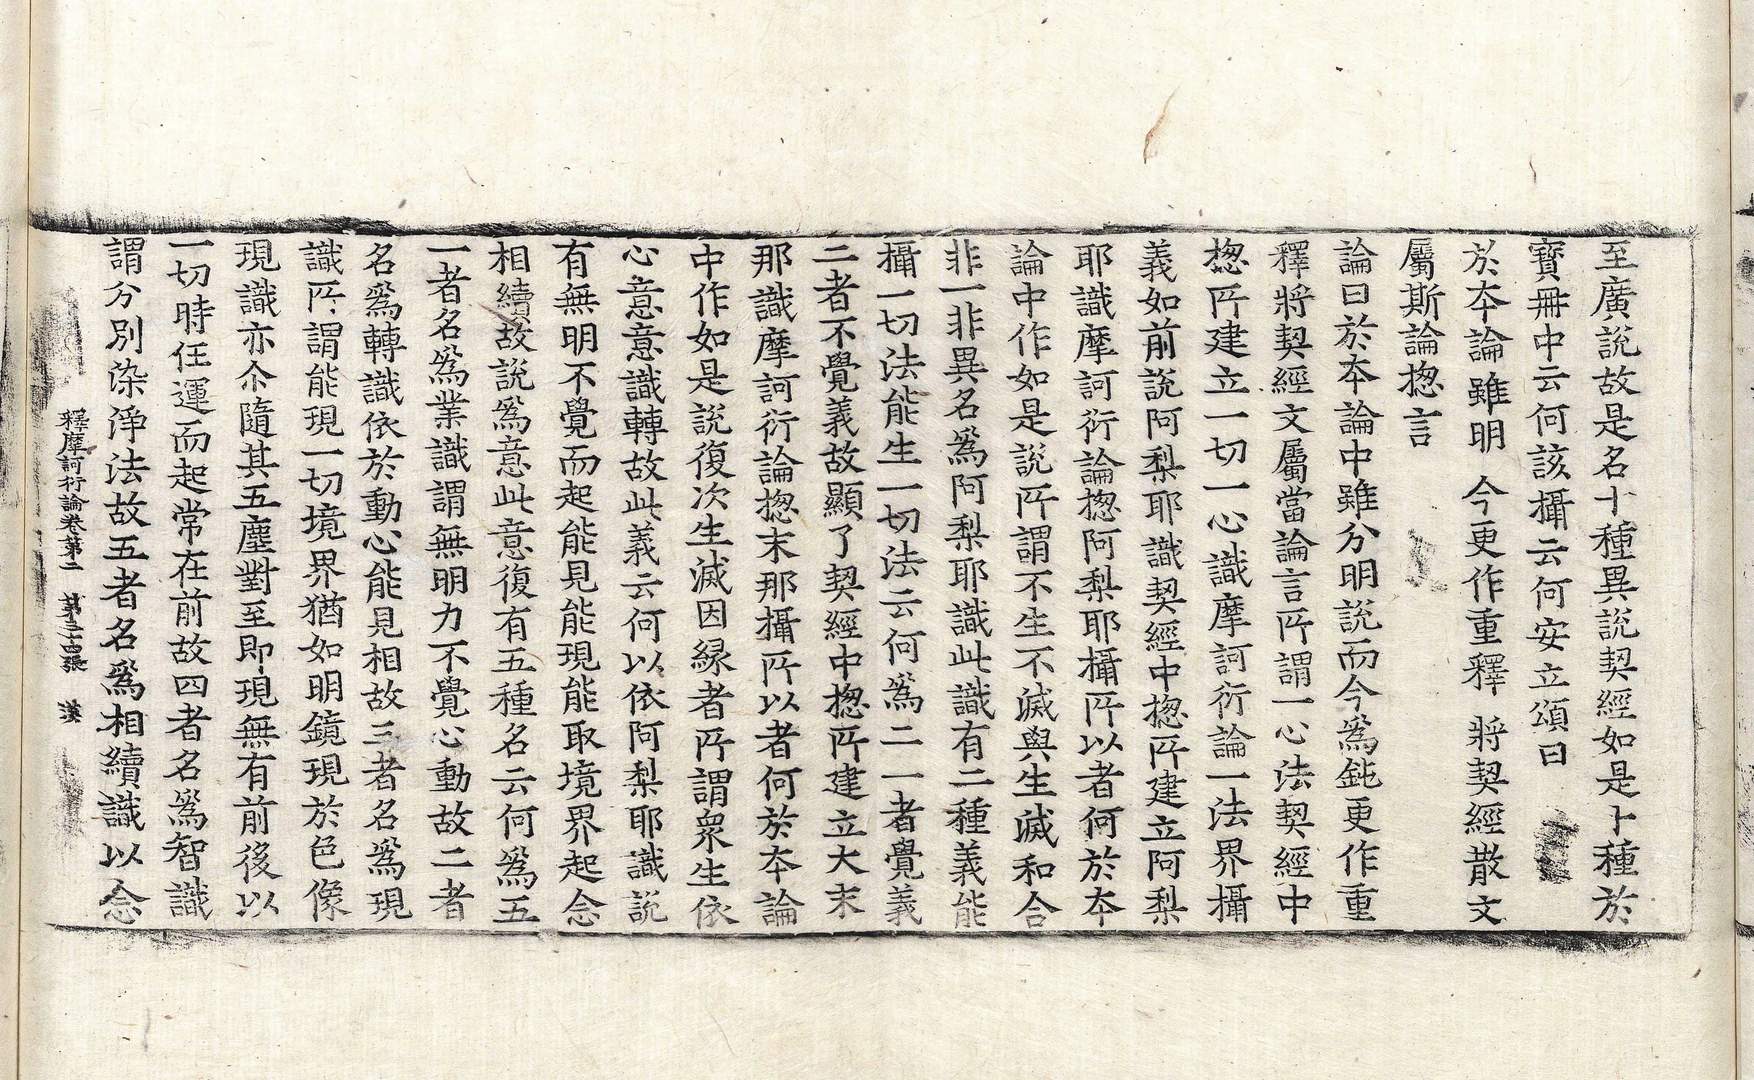 至廣說故是名十種異說契經如是十種於
寶冊中云何該攝云何安立頌曰
於夲論雖明　今更作重釋　將契經散文
屬斯論揔言
論曰於夲論中雖分明說而今爲鈍更作重
釋將契經文屬當論言所謂一心法契經中
揔所建立一切一心識摩訶衍論一法界攝
義如前說阿梨耶識契經中揔所建立阿梨
耶識摩訶衍論揔阿梨耶攝所以者何於夲
論中作如是說所謂不生不滅與生滅和合
非一非異名爲阿梨耶識此識有二種義能
攝一切法能生一切法云何爲二一者覺義
二者不覺義故顯了契經中揔所建立大末
那識摩訶衍論揔末那攝所以者何於夲論
中作如是說復次生滅因緣者所謂衆生依
心意意識轉故此義云何以依阿梨耶識說
有無明不覺而起能見能現能取境界起念
相續故說爲意此意復有五種名云何爲五
一者名爲業識謂無明力不覺心動故二者
名爲轉識依於動心能見相故三者名爲現
識所謂能現一切境界猶如明鏡現於色像
現識亦尒隨其五塵對至即現無有前後以
一切時任運而起常在前故四者名爲智識
謂分別染淨法故五者名爲相續識以念
釋摩訶衍論卷第二　第二十古張　漢